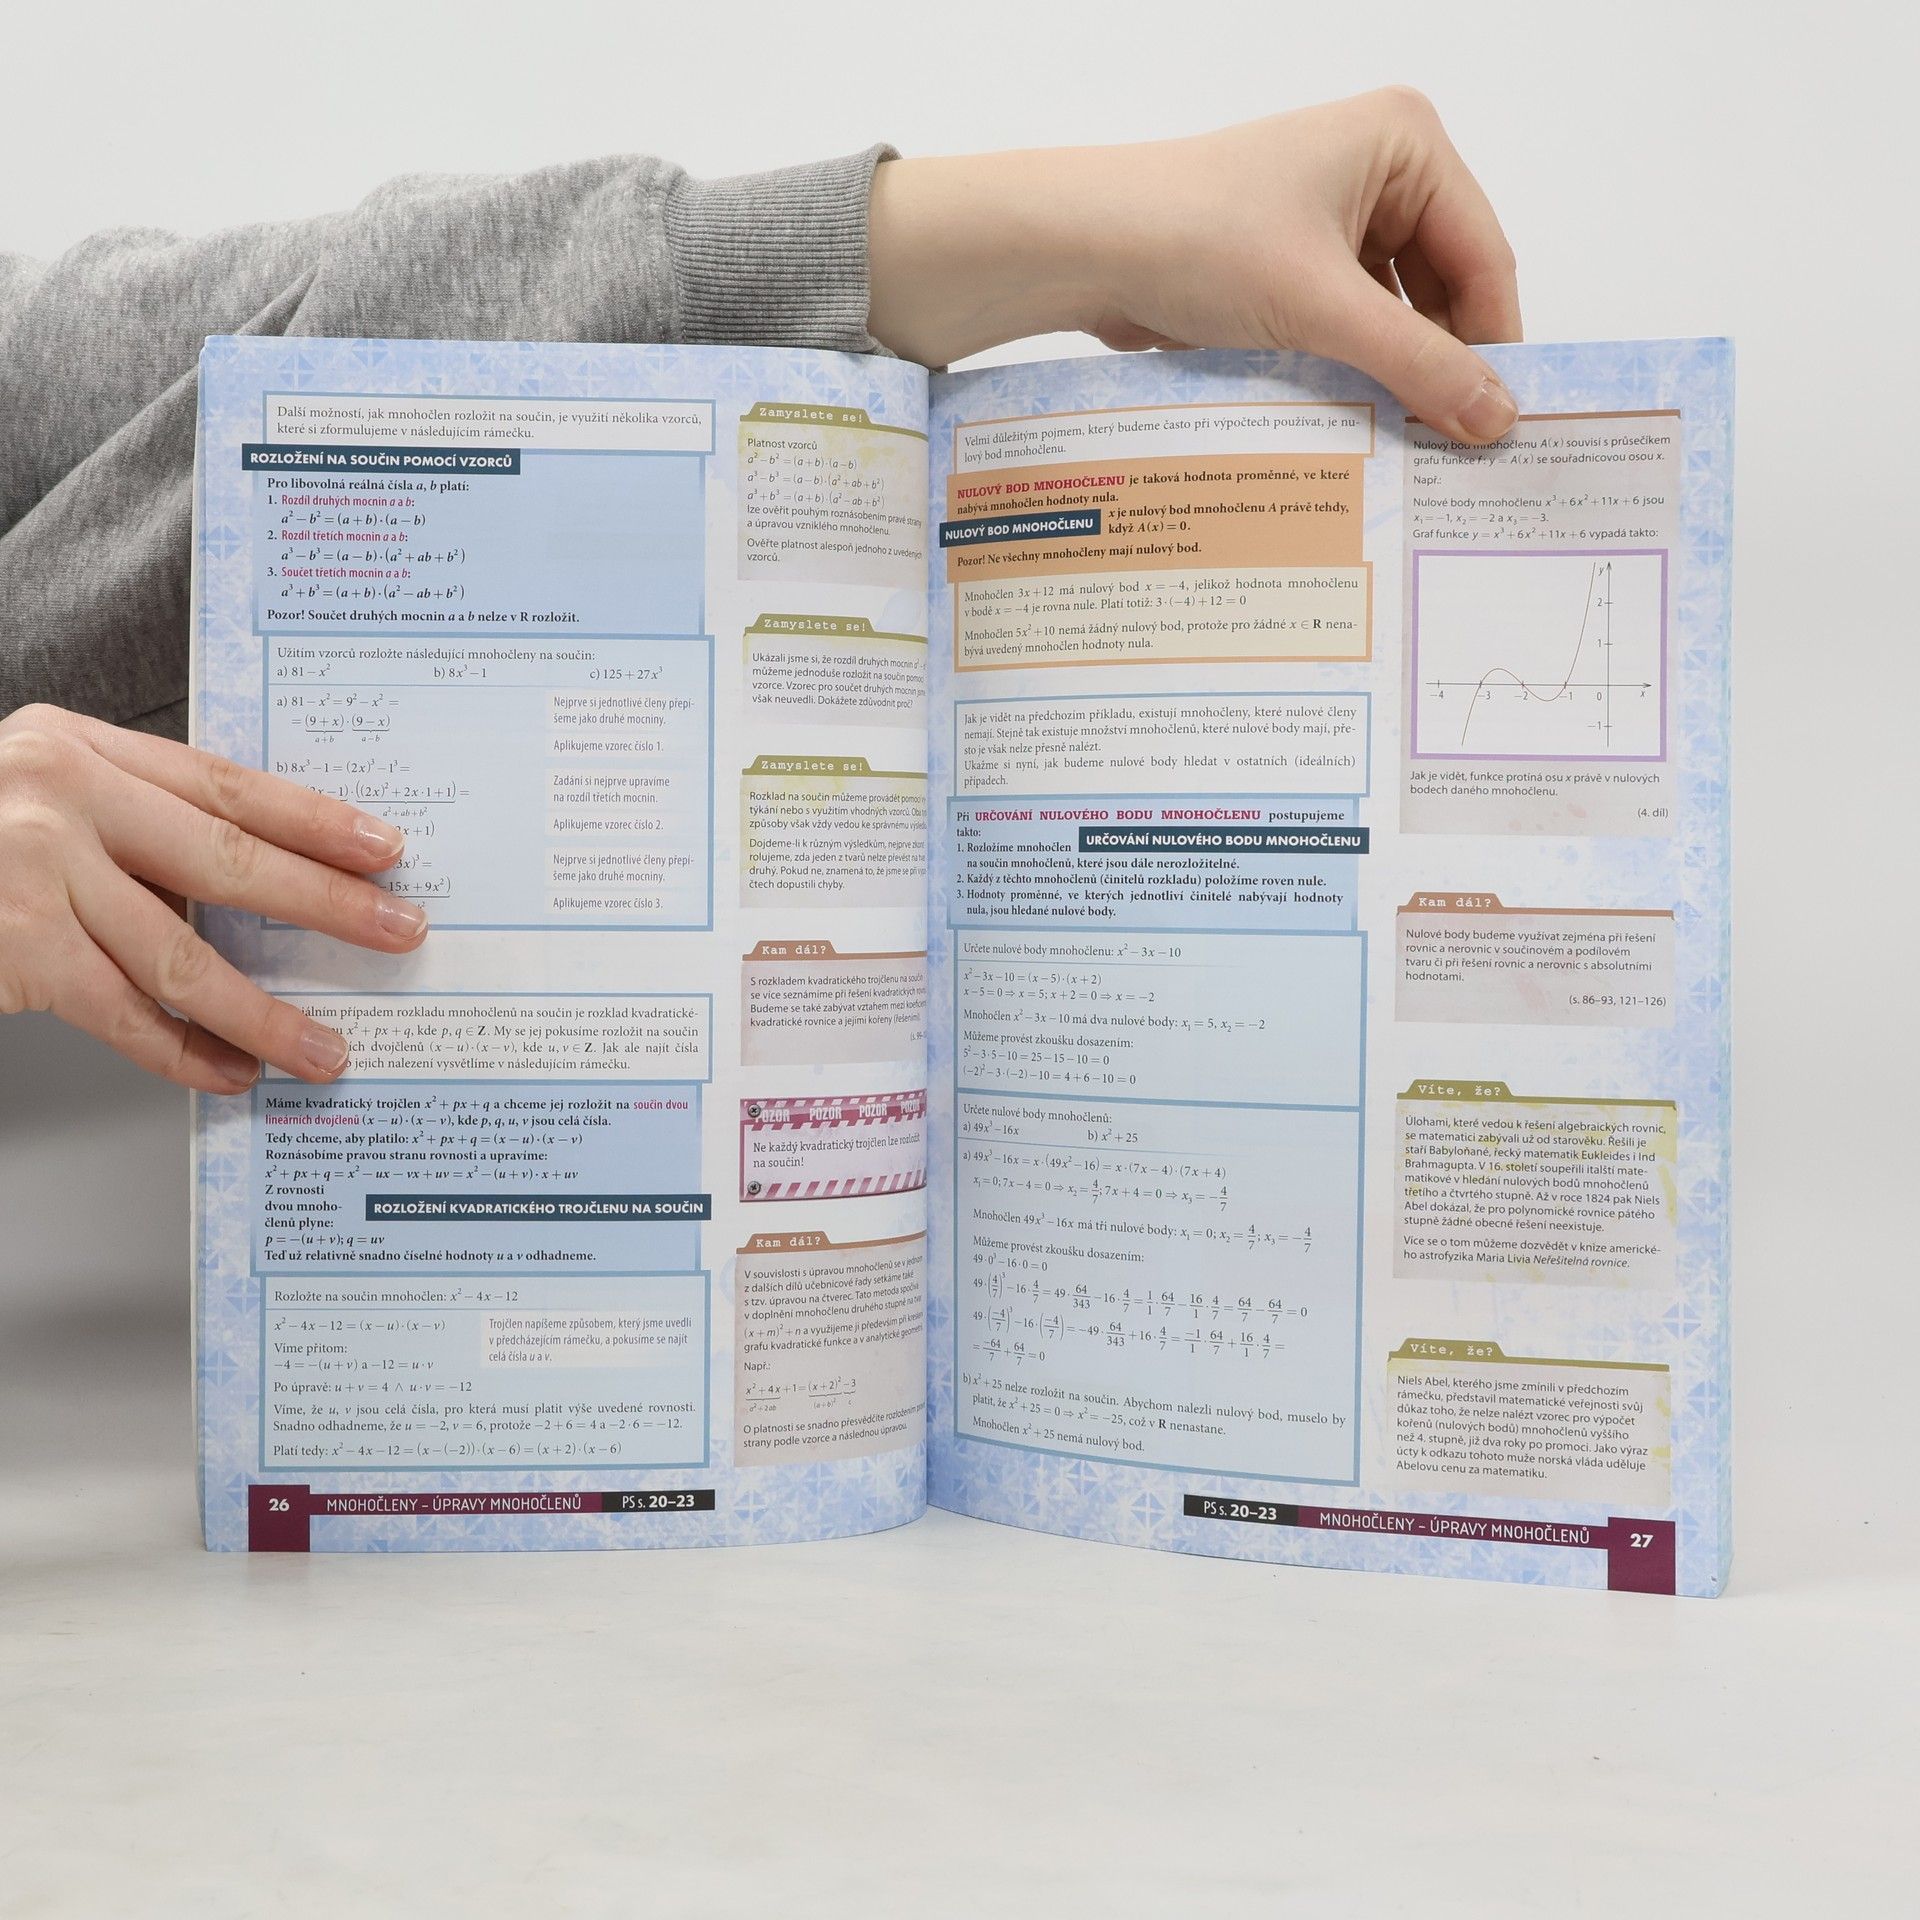 Další možností, jak mnohočlen rozložit na součin, je využití několika vzorců,
které si zformulujeme v následujícím rámečku.
ROZLOŽENÍ NA SOUČIN POMOCÍ VZORCŮ
Pro libovolná reálná čísla a, b platí:
1. Rozdíl druhých mocnin a a b:
a² − b² = (a + b)·(a − b)
2. Rozdíl třetích mocnin a a b:
a³ − b³ = (a − b)·(a² + ab + b²)
3. Součet třetích mocnin a a b:
a³ + b³ = (a + b)·(a² − ab + b²)
Pozor! Součet druhých mocnin a a b nelze v R rozložit.
Užitím vzorců rozložte následující mnohočleny na součin:
a) 81 − x² b) 8x³ − 1 c) 125 + 27x³
a) 81 − x² = 9² − x² =
= (9 + x)·(9 − x)
a+b a−b
Nejprve si jednotlivé členy přepí-
šeme jako druhé mocniny.
Aplikujeme vzorec číslo 1.
b) 8x³ − 1 = (2x)³ − 1³ =
x − 1)·((2x)² + 2x·1 + 1) =
a² + ab + b²
x + 1)
Zadání si nejprve upravíme
na rozdíl třetích mocnin.
Aplikujeme vzorec číslo 2.
3x)³ =
15x + 9x²)
Nejprve si jednotlivé členy přepí-
šeme jako druhé mocniny.
Aplikujeme vzorec číslo 3.
případem rozkladu mnohočlenů na součin je rozklad kvadratické-
x² + px + q, kde p, q ∈ Z. My se jej pokusíme rozložit na součin
dvojčlenů (x − u)·(x − v), kde u, v ∈ Z. Jak ale najít čísla
jejich nalezení vysvětlíme v následujícím rámečku.
Máme kvadratický trojčlen x² + px + q a chceme jej rozložit na součin dvou
lineárních dvojčlenů (x − u)·(x − v), kde p, q, u, v jsou celá čísla.
Tedy chceme, aby platilo: x² + px + q = (x − u)·(x − v)
Roznásobíme pravou stranu rovnosti a upravíme:
x² + px + q = x² − ux − vx + uv = x² − (u + v)·x + uv
Z rovnosti
dvou mnoho-
členů plyne:
ROZLOŽENÍ KVADRATICKÉHO TROJČLENU NA SOUČIN
p = −(u + v); q = uv
Teď už relativně snadno číselné hodnoty u a v odhadneme.
Rozložte na součin mnohočlen: x² − 4x − 12
x² − 4x − 12 = (x − u)·(x − v)
Víme přitom:
−4 = −(u + v) a −12 = u·v
Trojčlen napíšeme způsobem, který jsme uvedli
v předcházejícím rámečku, a pokusíme se najít
celá čísla u a v.
Po úpravě: u + v = 4 ∧ u·v = −12
Víme, že u, v jsou celá čísla, pro která musí platit výše uvedené rovnosti.
Snadno odhadneme, že u = −2, v = 6, protože −2 + 6 = 4 a −2·6 = −12.
Platí tedy: x² − 4x − 12 = (x − (−2))·(x − 6) = (x + 2)·(x − 6)
26 MNOHOČLENY – ÚPRAVY MNOHOČLENŮ PS s. 20–23
Zamyslete se!
Platnost vzorců
a² − b² = (a + b)·(a − b)
a³ − b³ = (a − b)·(a² + ab + b²)
a³ + b³ = (a + b)·(a² − ab + b²)
lze ověřit pouhým roznásobením pravé strany
a úpravou vzniklého mnohočlenu.
Ověřte platnost alespoň jednoho z uvedených
vzorců.
Zamyslete se!
Ukázali jsme si, že rozdíl druhých mocnin a² −
můžeme jednoduše rozložit na součin pomocí
vzorce. Vzorec pro součet druhých mocnin jsme
však neuvedli. Dokážete zdůvodnit proč?
Zamyslete se!
Rozklad na součin můžeme provádět pomocí vy-
týkání nebo s využitím vhodných vzorců. Oba
způsoby však vždy vedou ke správnému
Dojdeme-li k různým výsledkům, nejprve
rolujeme, zda jeden z tvarů nelze převést na
druhý. Pokud ne, znamená to, že jsme se při
čtech dopustili chyby.
Kam dál?
S rozkladem kvadratického trojčlenu na součin
se více seznámíme při řešení kvadratických
Budeme se také zabývat vztahem mezi
kvadratické rovnice a jejími kořeny (řešeními).
POZOR POZOR POZOR POZOR
Ne každý kvadratický trojčlen lze rozložit
na součin!
Kam dál?
V souvislosti s úpravou mnohočlenů se v jednom
z dalších dílů učebnicové řady setkáme také
s tzv. úpravou na čtverec. Tato metoda spočívá
v doplnění mnohočlenu druhého stupně na tvar
(x + m)² + n a využijeme ji především při kreslení
grafu kvadratické funkce a v analytické geometrii.
Např.:
x² + 4x + 1 = (x + 2)² − 3
a² + 2ab (a+b)² c
O platnosti se snadno přesvědčíte rozložením
strany podle vzorce a následnou úpravou.
Velmi důležitým pojmem, který budeme často při výpočtech používat, je nu-
lový bod mnohočlenu.
NULOVÝ BOD MNOHOČLENU je taková hodnota proměnné, ve které
nabývá mnohočlen hodnoty nula.
NULOVÝ BOD MNOHOČLENU
x je nulový bod mnohočlenu A právě tehdy,
když A(x) = 0.
Pozor! Ne všechny mnohočleny mají nulový bod.
Mnohočlen 3x + 12 má nulový bod x = −4, jelikož hodnota mnohočlenu
v bodě x = −4 je rovna nule. Platí totiž: 3·(−4) + 12 = 0
Mnohočlen 5x² + 10 nemá žádný nulový bod, protože pro žádné x ∈ R nena-
bývá uvedený mnohočlen hodnoty nula.
Jak je vidět na předchozím příkladu, existují mnohočleny, které nulové členy
nemají. Stejně tak existuje množství mnohočlenů, které nulové body mají, pře-
sto je však nelze přesně nalézt.
Ukažme si nyní, jak budeme nulové body hledat v ostatních (ideálních)
případech.
Při URČOVÁNÍ NULOVÉHO BODU MNOHOČLENU postupujeme
takto:
URČOVÁNÍ NULOVÉHO BODU MNOHOČLENU
1. Rozložíme mnohočlen
na součin mnohočlenů, které jsou dále nerozložitelné.
2. Každý z těchto mnohočlenů (činitelů rozkladu) položíme roven nule.
3. Hodnoty proměnné, ve kterých jednotliví činitelé nabývají hodnoty
nula, jsou hledané nulové body.
Určete nulové body mnohočlenu: x² − 3x − 10
x² − 3x − 10 = (x − 5)·(x + 2)
x − 5 = 0 ⇒ x = 5; x + 2 = 0 ⇒ x = −2
Mnohočlen x² − 3x − 10 má dva nulové body: x₁ = 5, x₂ = −2
Můžeme provést zkoušku dosazením:
5² − 3·5 − 10 = 25 − 15 − 10 = 0
(−2)² − 3·(−2) − 10 = 4 + 6 − 10 = 0
Určete nulové body mnohočlenů:
a) 49x³ − 16x b) x² + 25
a) 49x³ − 16x = x·(49x² − 16) = x·(7x − 4)·(7x + 4)
x₁ = 0; 7x − 4 = 0 ⇒ x₂ = 4/7; 7x + 4 = 0 ⇒ x₃ = −4/7
Mnohočlen 49x³ − 16x má tři nulové body: x₁ = 0; x₂ = 4/7; x₃ = −4/7
Můžeme provést zkoušku dosazením:
49·0³ − 16·0 = 0
49·(4/7)³ − 16·4/7 = 49·64/343 − 16·4/7 = 1/1·64/7 − 16/1·4/7 = 64/7 − 64/7 = 0
49·(−4/7)³ − 16·(−4/7) = −49·64/343 + 16·4/7 = −1/1·64/7 + 16/1·4/7 =
= −64/7 + 64/7 = 0
b) x² + 25 nelze rozložit na součin. Abychom nalezli nulový bod, muselo by
platit, že x² + 25 = 0 ⇒ x² = −25, což v R nenastane.
Mnohočlen x² + 25 nemá nulový bod.
Nulový bod mnohočlenu A(x) souvisí s průsečíkem
grafu funkce f: y = A(x) se souřadnicovou osou x.
Např.:
Nulové body mnohočlenu x³ + 6x² + 11x + 6 jsou
x₁ = −1, x₂ = −2 a x₃ = −3.
Graf funkce y = x³ + 6x² + 11x + 6 vypadá takto:
y
2
1
−4 −3 −2 −1 0 x
−1
Jak je vidět, funkce protíná osu x právě v nulových
bodech daného mnohočlenu.
(4. díl)
Kam dál?
Nulové body budeme využívat zejména při řešení
rovnic a nerovnic v součinovém a podílovém
tvaru či při řešení rovnic a nerovnic s absolutními
hodnotami.
(s. 86–93, 121–126)
Víte, že?
Úlohami, které vedou k řešení algebraických rovnic,
se matematici zabývali už od starověku. Řešili je
staří Babyloňané, řecký matematik Eukleides i Ind
Brahmagupta. V 16. století soupeřili italští mate-
matikové v hledání nulových bodů mnohočlenů
třetího a čtvrtého stupně. Až v roce 1824 pak Niels
Abel dokázal, že pro polynomické rovnice pátého
stupně žádné obecné řešení neexistuje.
Více se o tom můžeme dozvědět v knize americké-
ho astrofyzika Maria Livia Neřešitelná rovnice.
Víte, že?
Niels Abel, kterého jsme zmínili v předchozím
rámečku, představil matematické veřejnosti svůj
důkaz toho, že nelze nalézt vzorec pro výpočet
kořenů (nulových bodů) mnohočlenů vyššího
než 4. stupně, již dva roky po promoci. Jako výraz
úcty k odkazu tohoto muže norská vláda uděluje
Abelovu cenu za matematiku.
PS s. 20–23 MNOHOČLENY – ÚPRAVY MNOHOČLENŮ 27